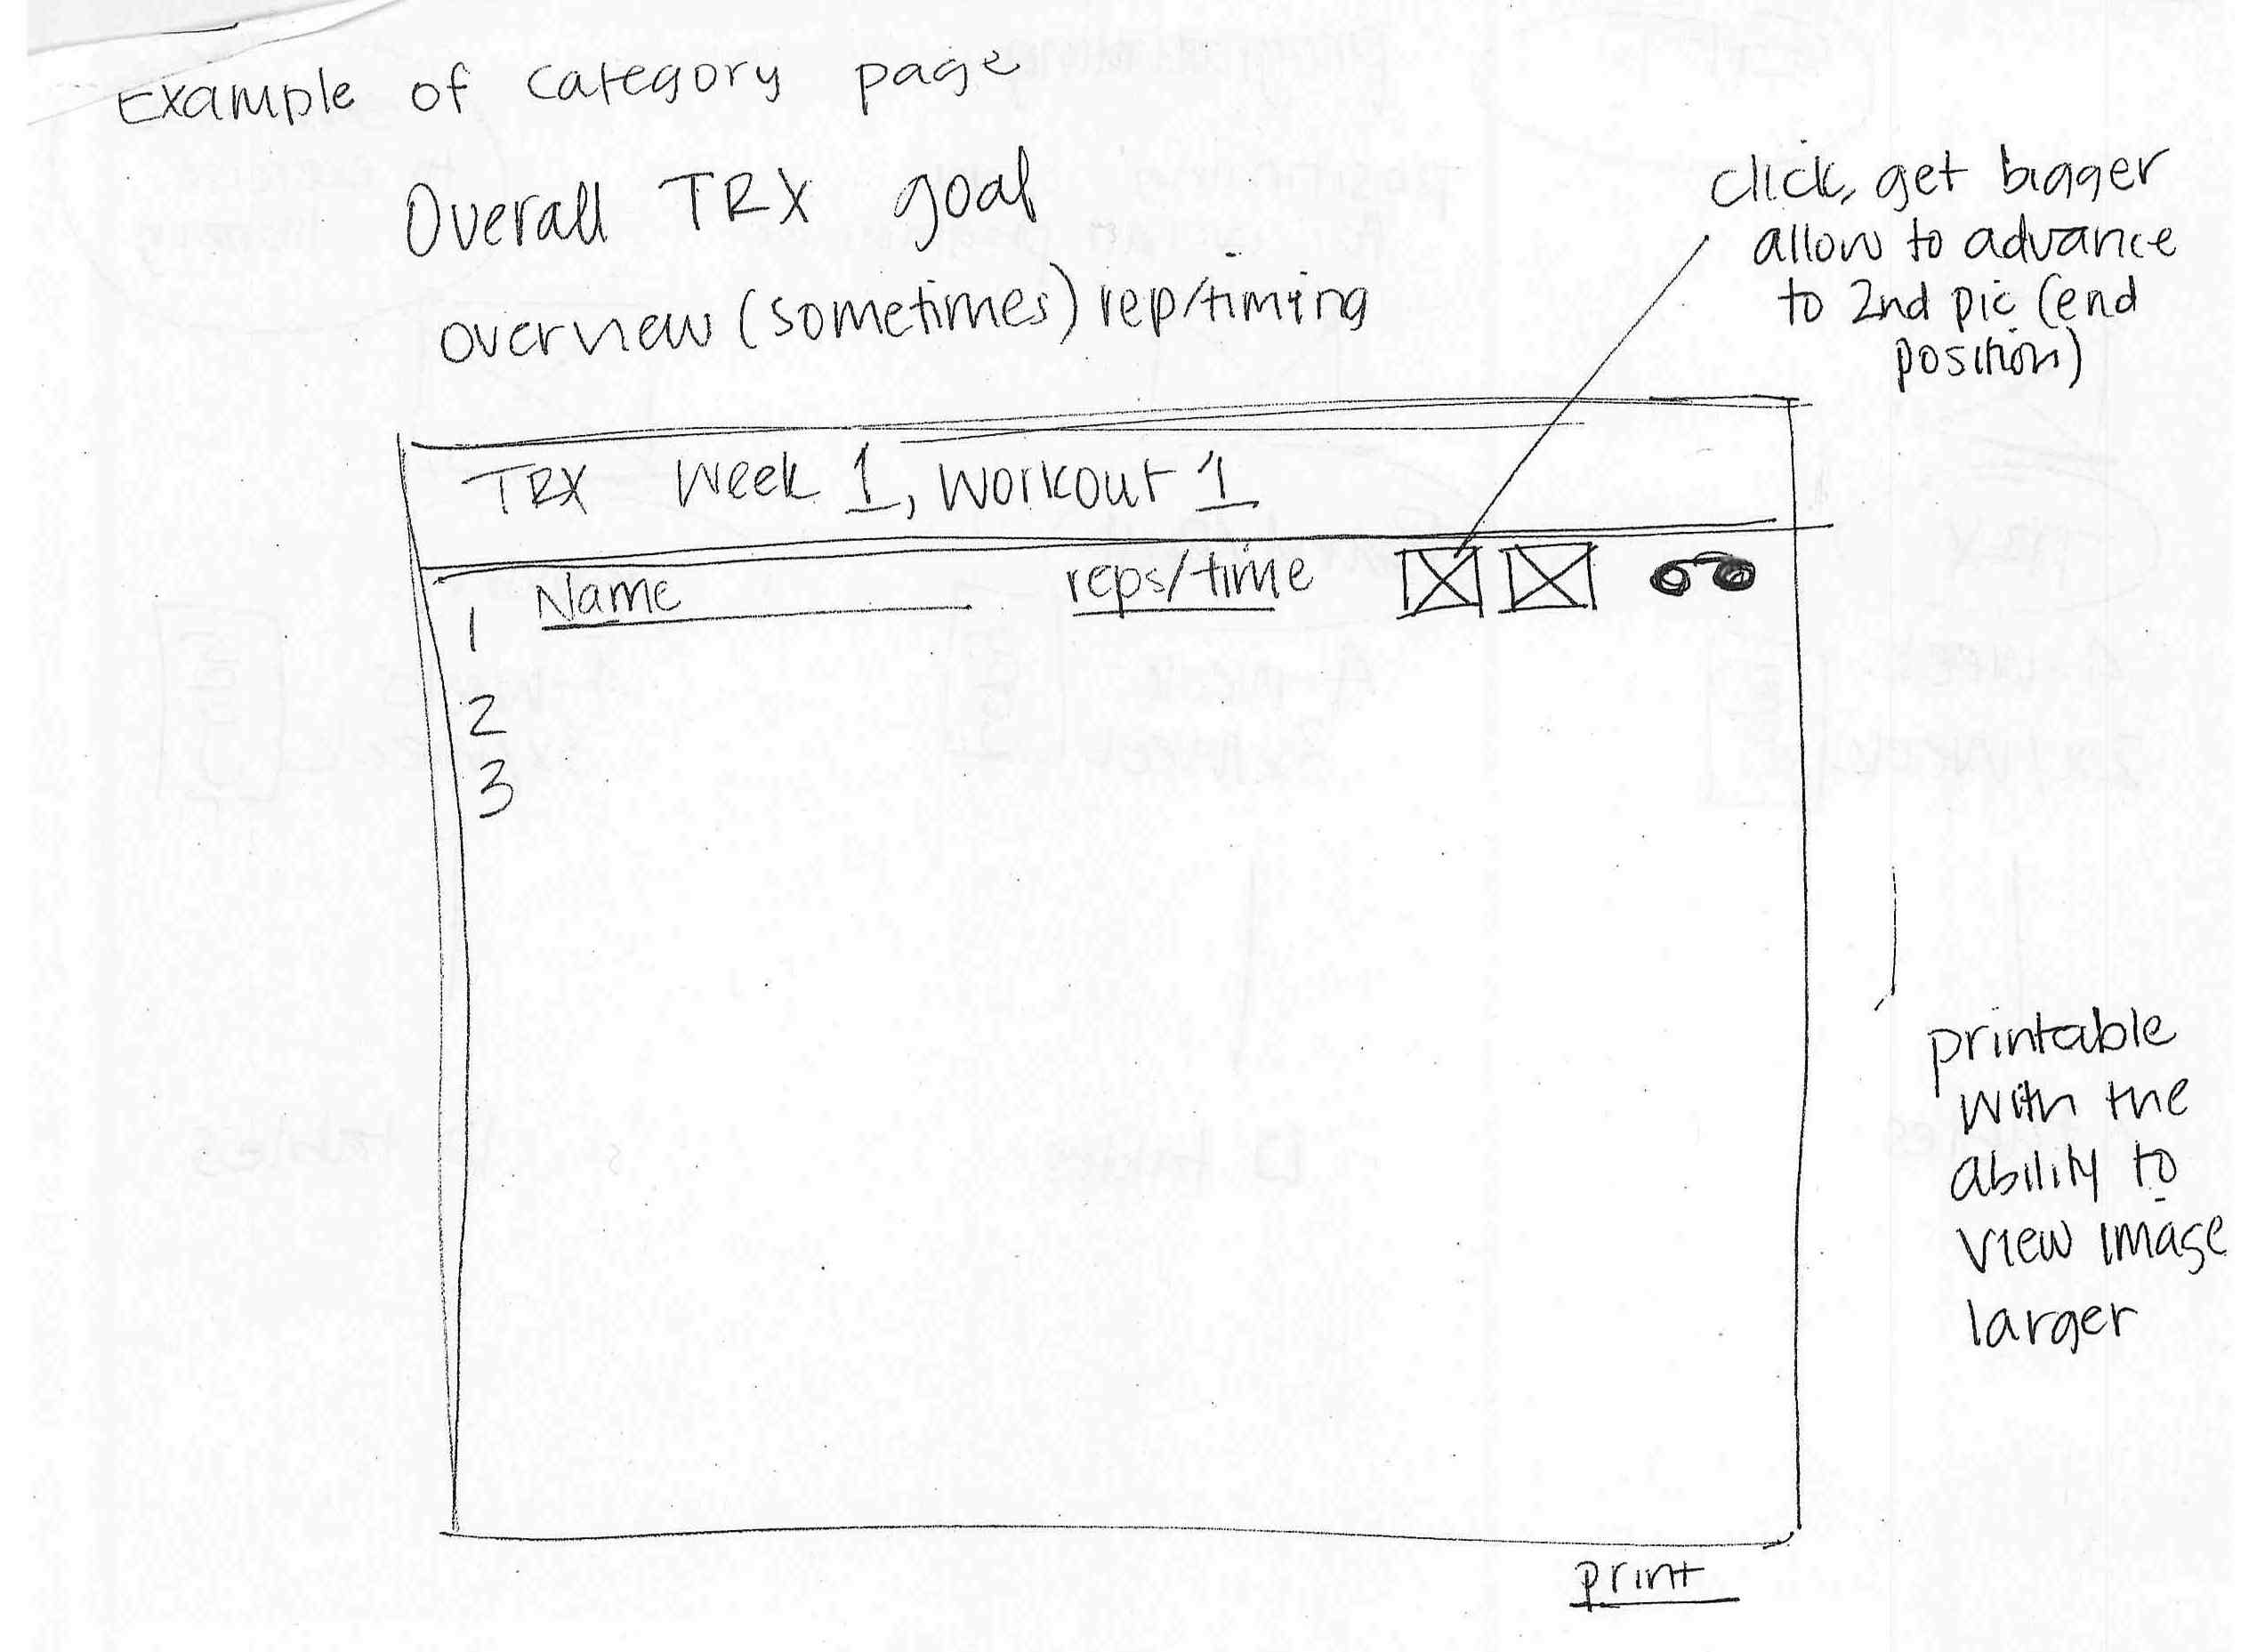 Example of category page
Overall TRX goal
overview (sometimes) rep/timing
click, get bigger
allow to advance
to 2nd pic (end
position)
TRX Week 1, Workout 1
1 Name reps/time
2
3
printable
with the
ability to
view image
larger
print